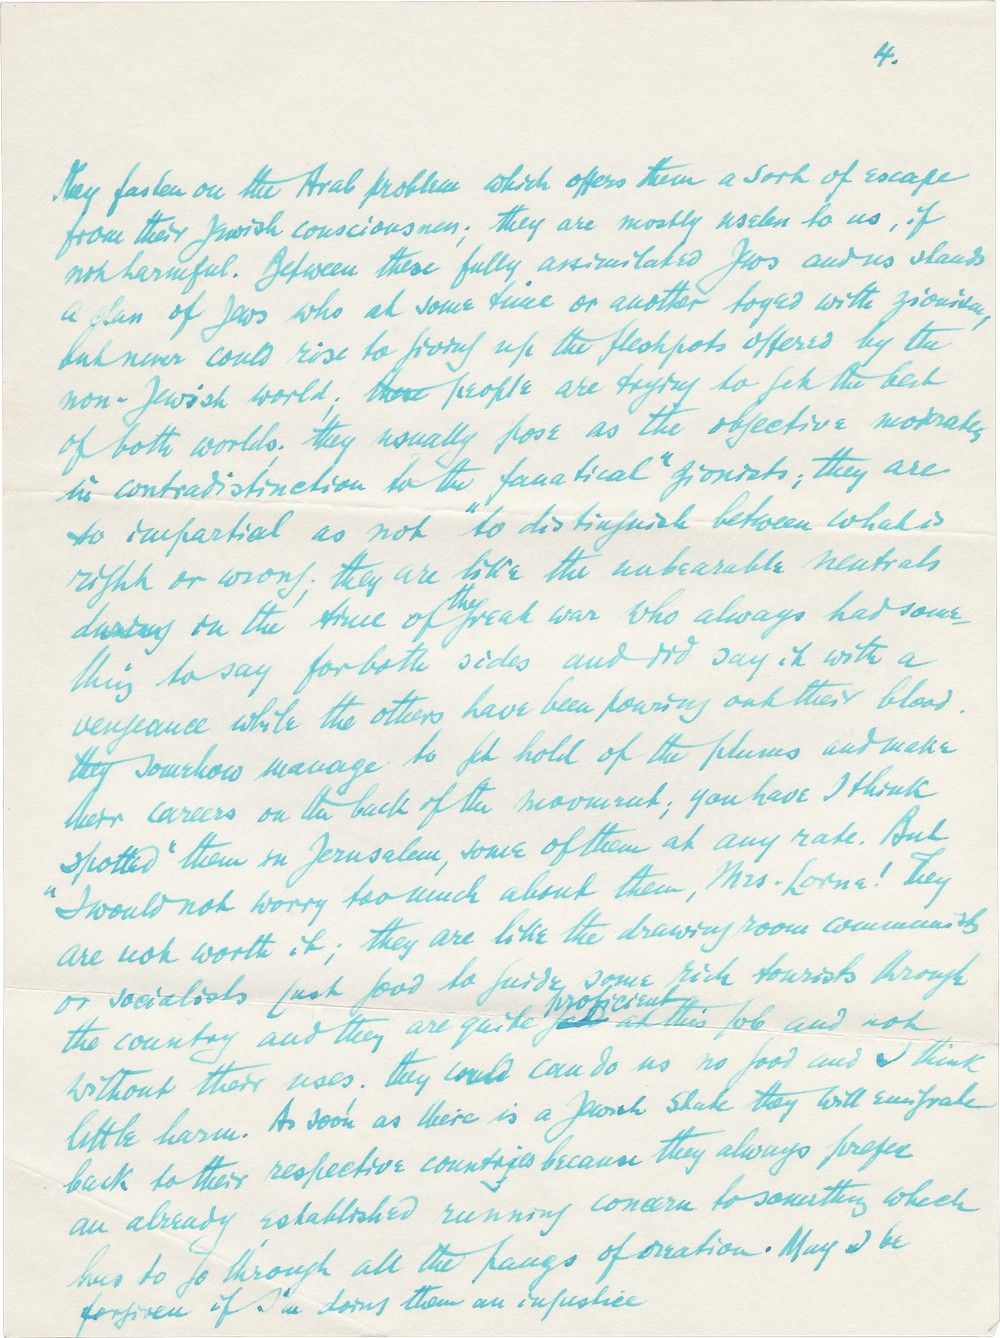 4.
They fasten on the Arab problem which offers them a sort of escape
from their Jewish consciousness; they are mostly useless to us, if
not harmful. Between these fully assimilated Jews and us stands
a class of Jews who at some time or another toyed with zionism,
but never could rise to giving up the fleshpots offered by the
non-Jewish world; those people are trying to get the best
of both worlds. They usually pose as the objective moderates
in contradistinction to the "fanatical" zionists; they are
so impartial as not to distinguish between what is
right or wrong; they are like the unbearable neutrals
during in the time of the great war who always had some-
thing to say for both sides and did say it with a
vengeance while the others have been pouring out their blood.
They somehow manage to get hold of the plums and make
their careers on the back of the movment; you have I think
"spotted" them in Jerusalem, some of them at any rate. But
I would not worry too much about them, Mrs. Lorne! They
are not worth it; they are like the drawing room communists
or socialists just good to guide some rich tourists through
the country and they are quite proficient at this job and not
without their uses. They could can do us no good and I think
little harm. As soon as there is a Jewish State they will emigrate
back to their respective countries because they always prefer
an already established running concern to something which
has to go through all the pangs of creation. May I be
forgiven if I'm doing them an injustice